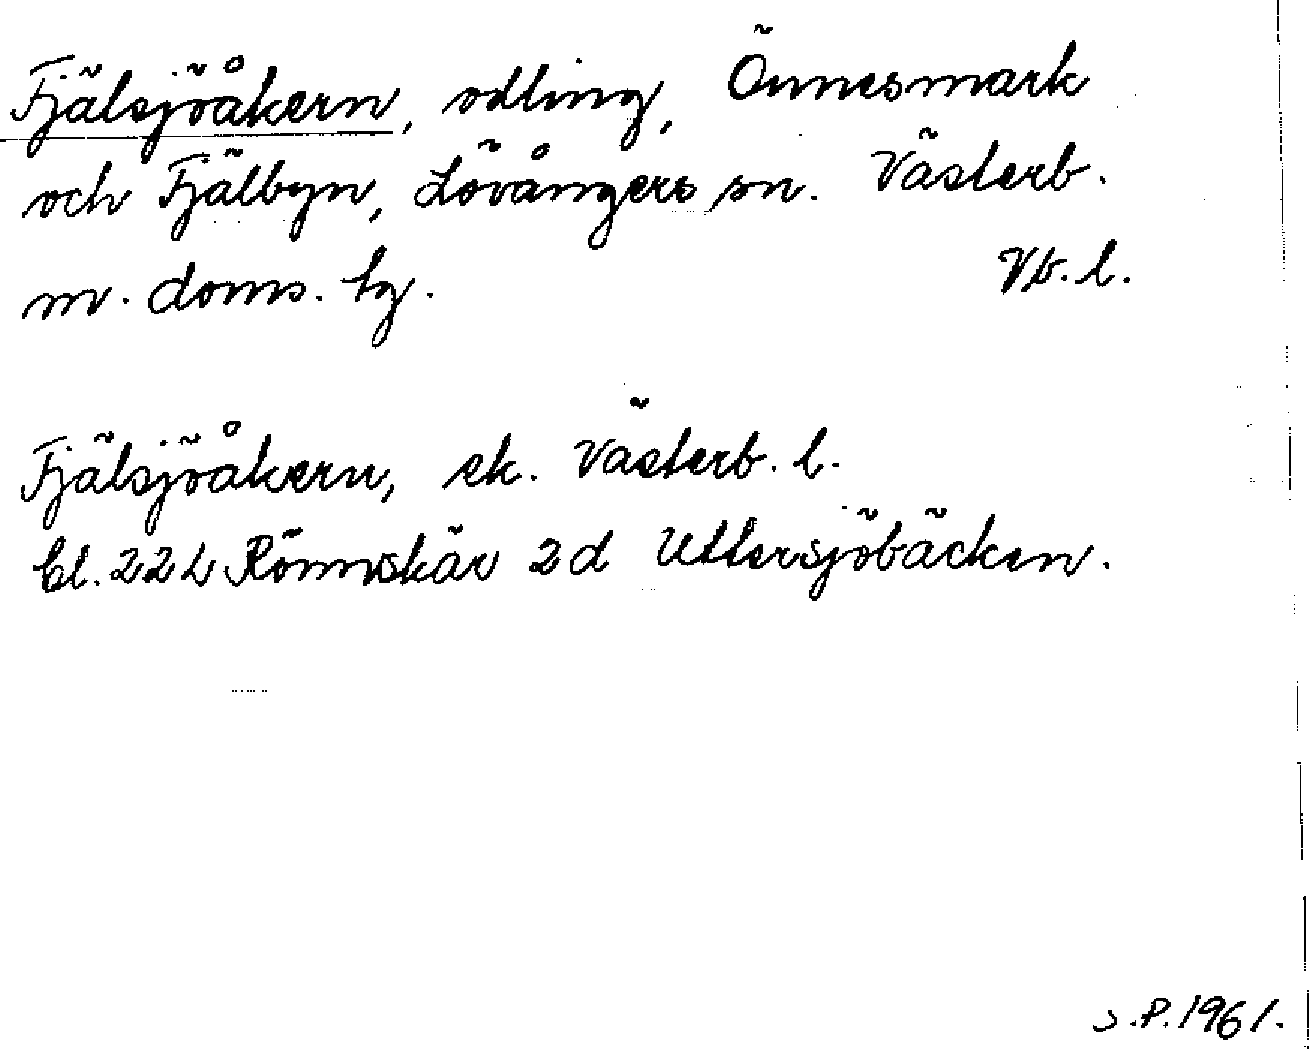 Fjälsjöåkern, odling, Önnesmark
och Fjälbyn, Lövångers sn. Västerb.
m. doms. tg. Vb. l.
Fjälsjöåkern, ek. Västerb. l.
bl. 22 L Rönnskär 2d Uttersjöbäcken.
S.P. 1961.